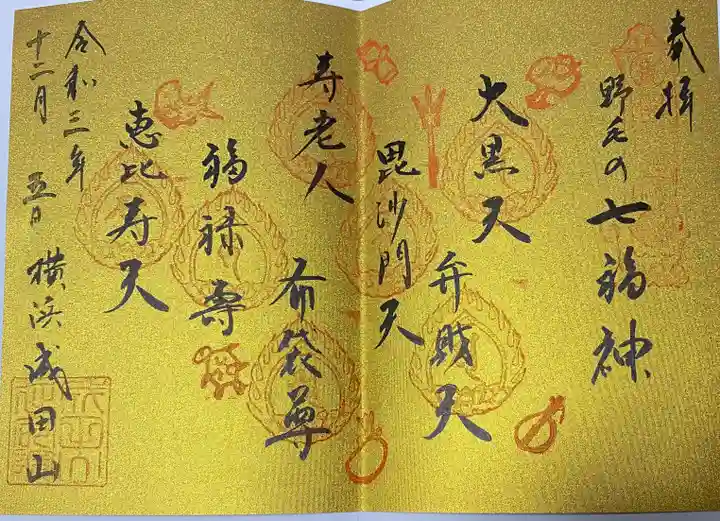 奉拝
野毛の七福神
大黒天
弁財天
毘沙門天
寿老人
布袋尊
福禄壽
恵比寿天
令和三年
十二月 五日 横浜成田山